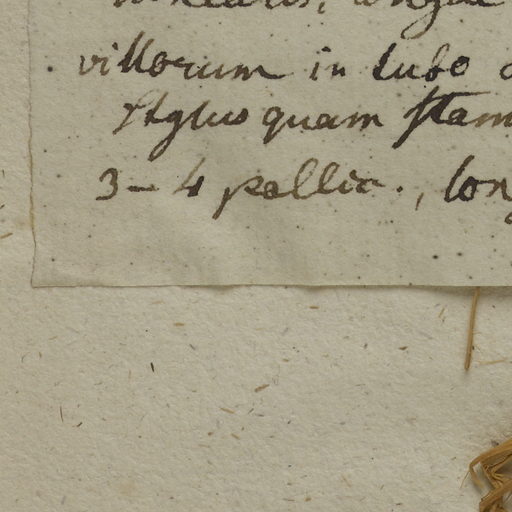 villorum in tubo
stylus quam stam
3-4 pollic., lon